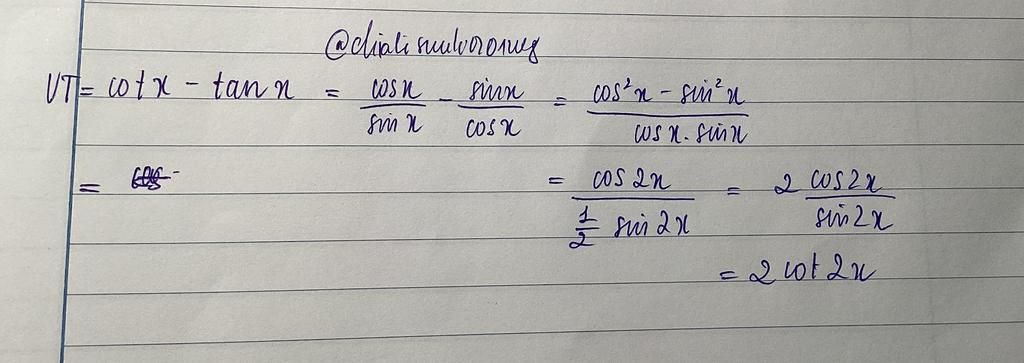 VT = cotx - tanx = cosx/sinx - sinx/cosx = (cos²x - sin²x)/(cosx.sinx)
= = cos2x/(1/2 sin2x) = 2 cos2x/sin2x
= 2cot2x